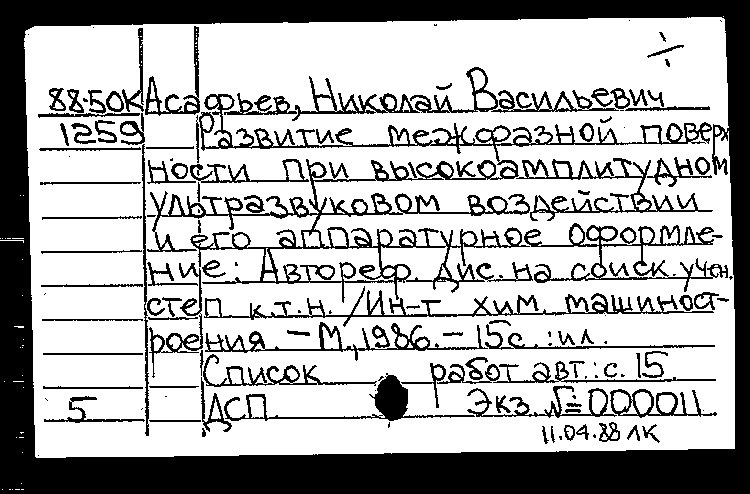 88-50К Асафьев, Николай Васильевич
1259 Развитие межфазной поверх
ности при высокоамплитудном
ультразвуковом воздействии
и его аппаратурное оформле-
ние: Автореф. дис. на соиск. учен.
степ к.т.н. /Ин-т хим. машиност-
роения. - М., 1986. - 15с. : ил.
Список работ авт.: с. 15.
5 ДСП Экз. №=000011
11.04.88 ЛК